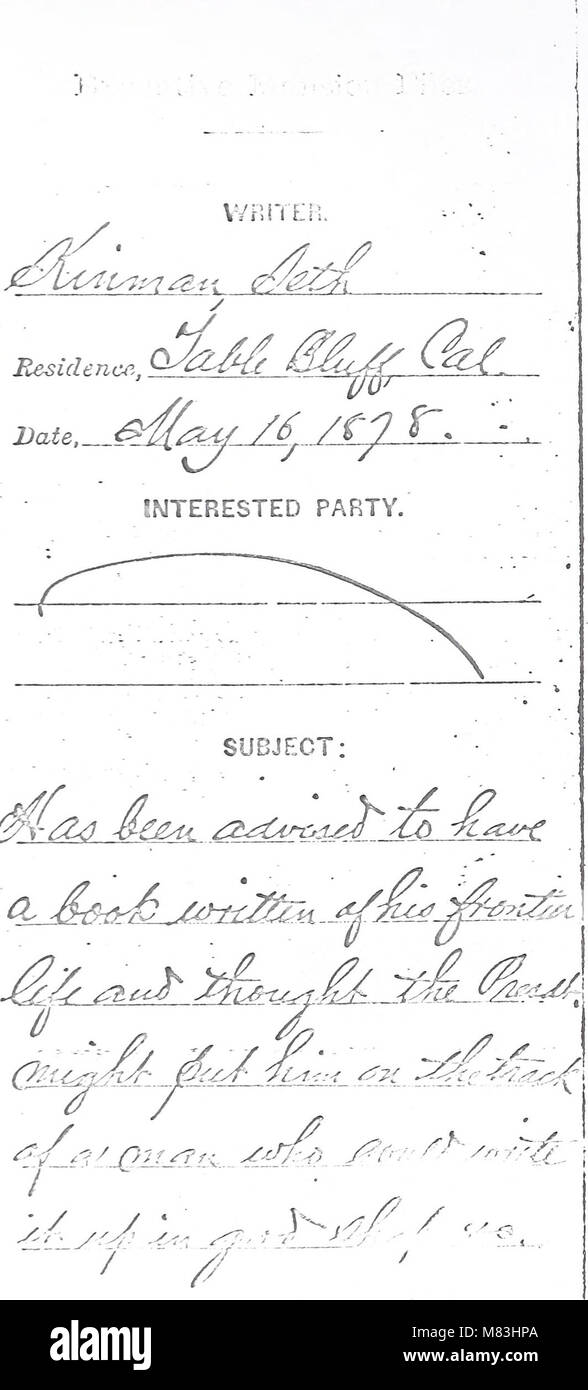 WRITER.
Kinman, Seth
Residence, Table Bluff, Cal.
Date, May 16, 1878.
INTERESTED PARTY.
SUBJECT:
Has been advised to have
a book written of his frontier
life and thought the Presdt.
might put him on the track
of a man who could write
it up in good shape
alamy
Image ID: M83HPA
www.alamy.com